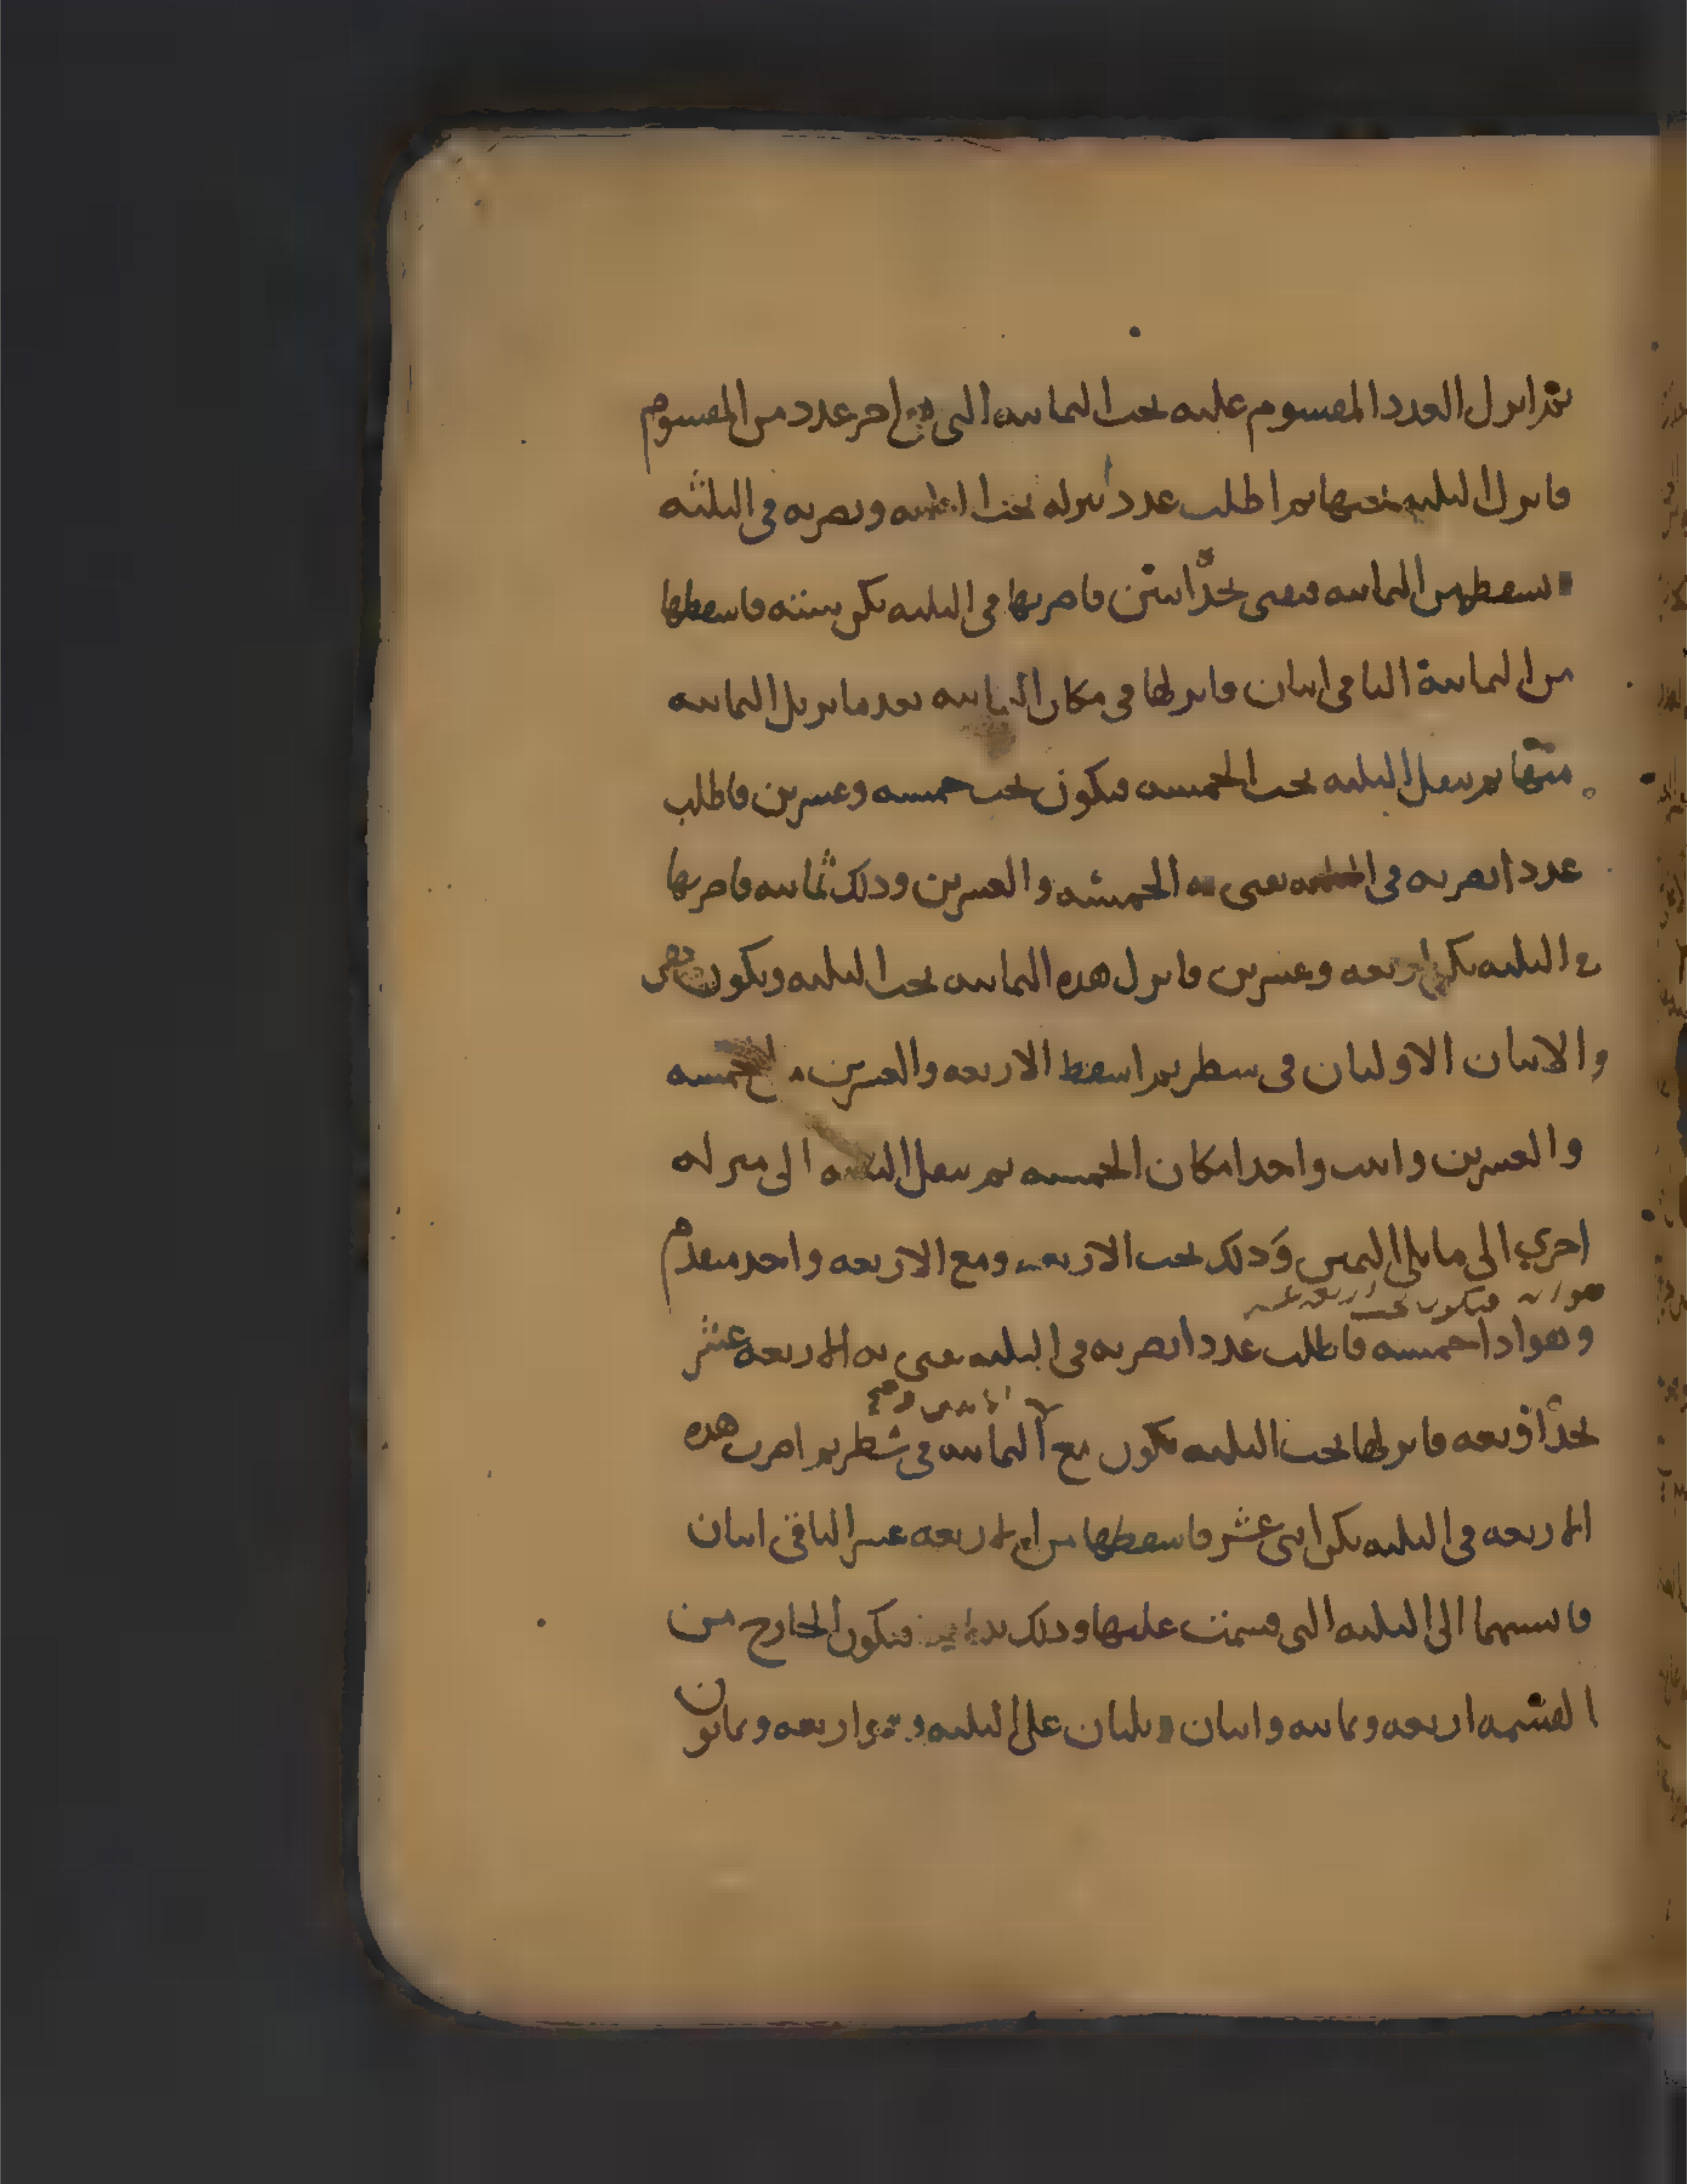 ثم انزل العدد المقسوم عليه تحت الثمانيه التى هي اخر عدد من المقسوم
فانزل الثلثيه تحتها ثم اطلب عددا تنزله تحت الثلثيه وتضربه فى الثلثه
تسقطه من الثمانيه فيفنى تجد اثنين فاضربها فى الثلثيه يكن سته فاسقطها
من الثمانية الباقى اثنان فانزلها فى مكان الثمانيه بعد ما تزيل الثمانيه
منها ثم تنقل الثلثيه تحت الخمسه فيكون تحت خمسه وعشرين فاطلب
عددا تضربه فى الثلثه يفنى به الخمسه والعشرين وذلك ثمانيه فاضربها
فى الثلثيه يكن اربعه وعشرين فانزل هذه الثمانيه تحت الثلثيه ويكون هى
والاثنان الاوليان فى سطر ثم اسقط الاربعه والعشرين من الخمسه
والعشرين واثبت واحدا مكان الخمسه ثم تنقل الثلثيه الى منزله
اخرى الى ما يلى اليمين وذلك تحت الاربعه ومع الاربعه واحد متقدم
فيكون تحت اربعه عشر
وهو اذا خمسه فاطلب عددا تضربه فى الثلثيه يفنى به الاربعه عشر
تجد اربعه فانزلها تحت الثلثيه تكون مع الثمانيه فى سطر ثم اضرب هذه
الاربعه فى الثلثيه يكن اثنى عشر فاسقطها من الاربعه عشر الباقى اثنان
فانسبهما الى الثلثيه التى قسمت عليها وذلك فيكون الخارج من
القسمه اربعه وثمانيه واثنان وثلثان على الثلثيه اربعه وثمانون